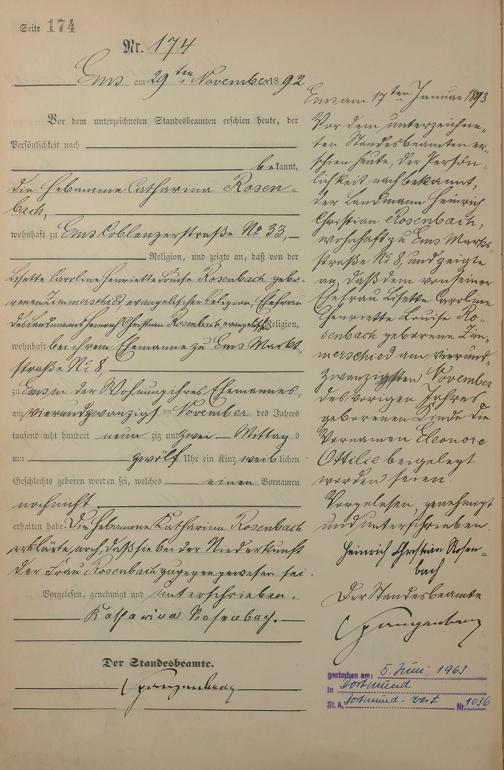 Seite 174
Nr. 174
Ems am 29ten November 1892
Vor dem unterzeichneten Standesbeamten erschien heute, der
Persönlichkeit nach
bekannt,
die Hebamme Catharina Rosen-
bach,
wohnhaft zu Ems Coblenzerstraße No 33,
Religion, und zeigte an, daß von der
Lisette Caroline Henriette Louise Rosenbach gebo-
renen Zimmerschied, evangelischer Religion, Ehefrau
des Landmanns Heinrich Christian Rosenbach, evangelischer Religion,
wohnhaft bei ihrem Ehemanne zu Ems Markt-
straße No 8
zu Ems in der Wohnung ihres Ehemannes,
am vierundzwanzigsten November des Jahres
tausend acht hundert neunzig und zwei Mittags
um zwölf Uhr ein Kind weiblichen
Geschlechts geboren worden sei, welches einen Vornamen
noch nicht
erhalten habe. Die Hebamme Katharina Rosenbach
erklärte noch, daß sie bei der Niederkunft
der Frau Rosenbach zugegen gewesen sei.
Vorgelesen, genehmigt und unterschrieben.
Katharina Rosenbach.
Der Standesbeamte.
Spangenberg
Ems am 17ten Januar 1893
Vor dem unterzeichne-
ten Standesbeamten er-
schien heute, der Persön-
lichkeit nach bekannt,
der Landmann Heinrich
Christian Rosenbach,
wohnhaft zu Ems Markt-
straße No 8, und zeigte
an, daß dem von seiner
Ehefrau Lisette Caroline
Henriette Louise Ro-
senbach geborenen Zim-
merschied am vierund-
zwanzigsten November
des vorigen Jahres
geborenen Kinde die
Vornamen Eleonore
Ottilie beigelegt
worden seien.
Vorgelesen, genehmigt
und unterschrieben
Heinrich Christian Rosen-
bach
Der Standesbeamte
Spangenberg
gestorben am: 5. Juni 1963
in Dortmund
St. A. Dortmund-West Nr. 1036